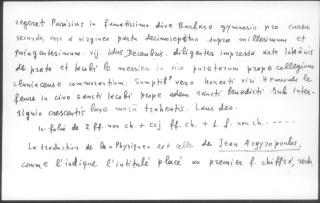 regeret Parisius in famatissimo dive Barbare gymnasio pro cursu
secundo, anno a virgineo partu decimoseptimo supra millesimum et
quingentesimum. vij. idus Decembris. diligenter impressa arte Johānis
de prato et Jacobi le messier in vico puretarum prope collegium
cluniacense commorantium. Sumptib' vero honesti viri Hemundi le
feure in vico sancti Jacobi prope edem sancti benedicti sub inter-
signio crescentis lune morā trahentis. Laus deo.
In-folio de 2 ff. non ch. + ccj ff. ch. + 1 f. non ch. - - - - -
La traduction de la Physique est celle de Jean Argyropoulos,
comme l'indique l'intitulé placé au premier f. chiffré, recto,